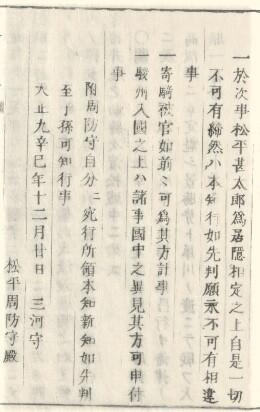 一於次事松平甚太郎為居隠相定之上自是一切
不可有綺然ハ本知行如先判願永不可有相違
事
一寄騎被官如前々可為其方計事
一駿州入國之上ハ諸事國中之異見其方可申付
事
附周防守自分ニ宛行所領本知新知如先判
至子孫可知行事
天正九辛巳年十二月廿日 三河守
松平周防守殿